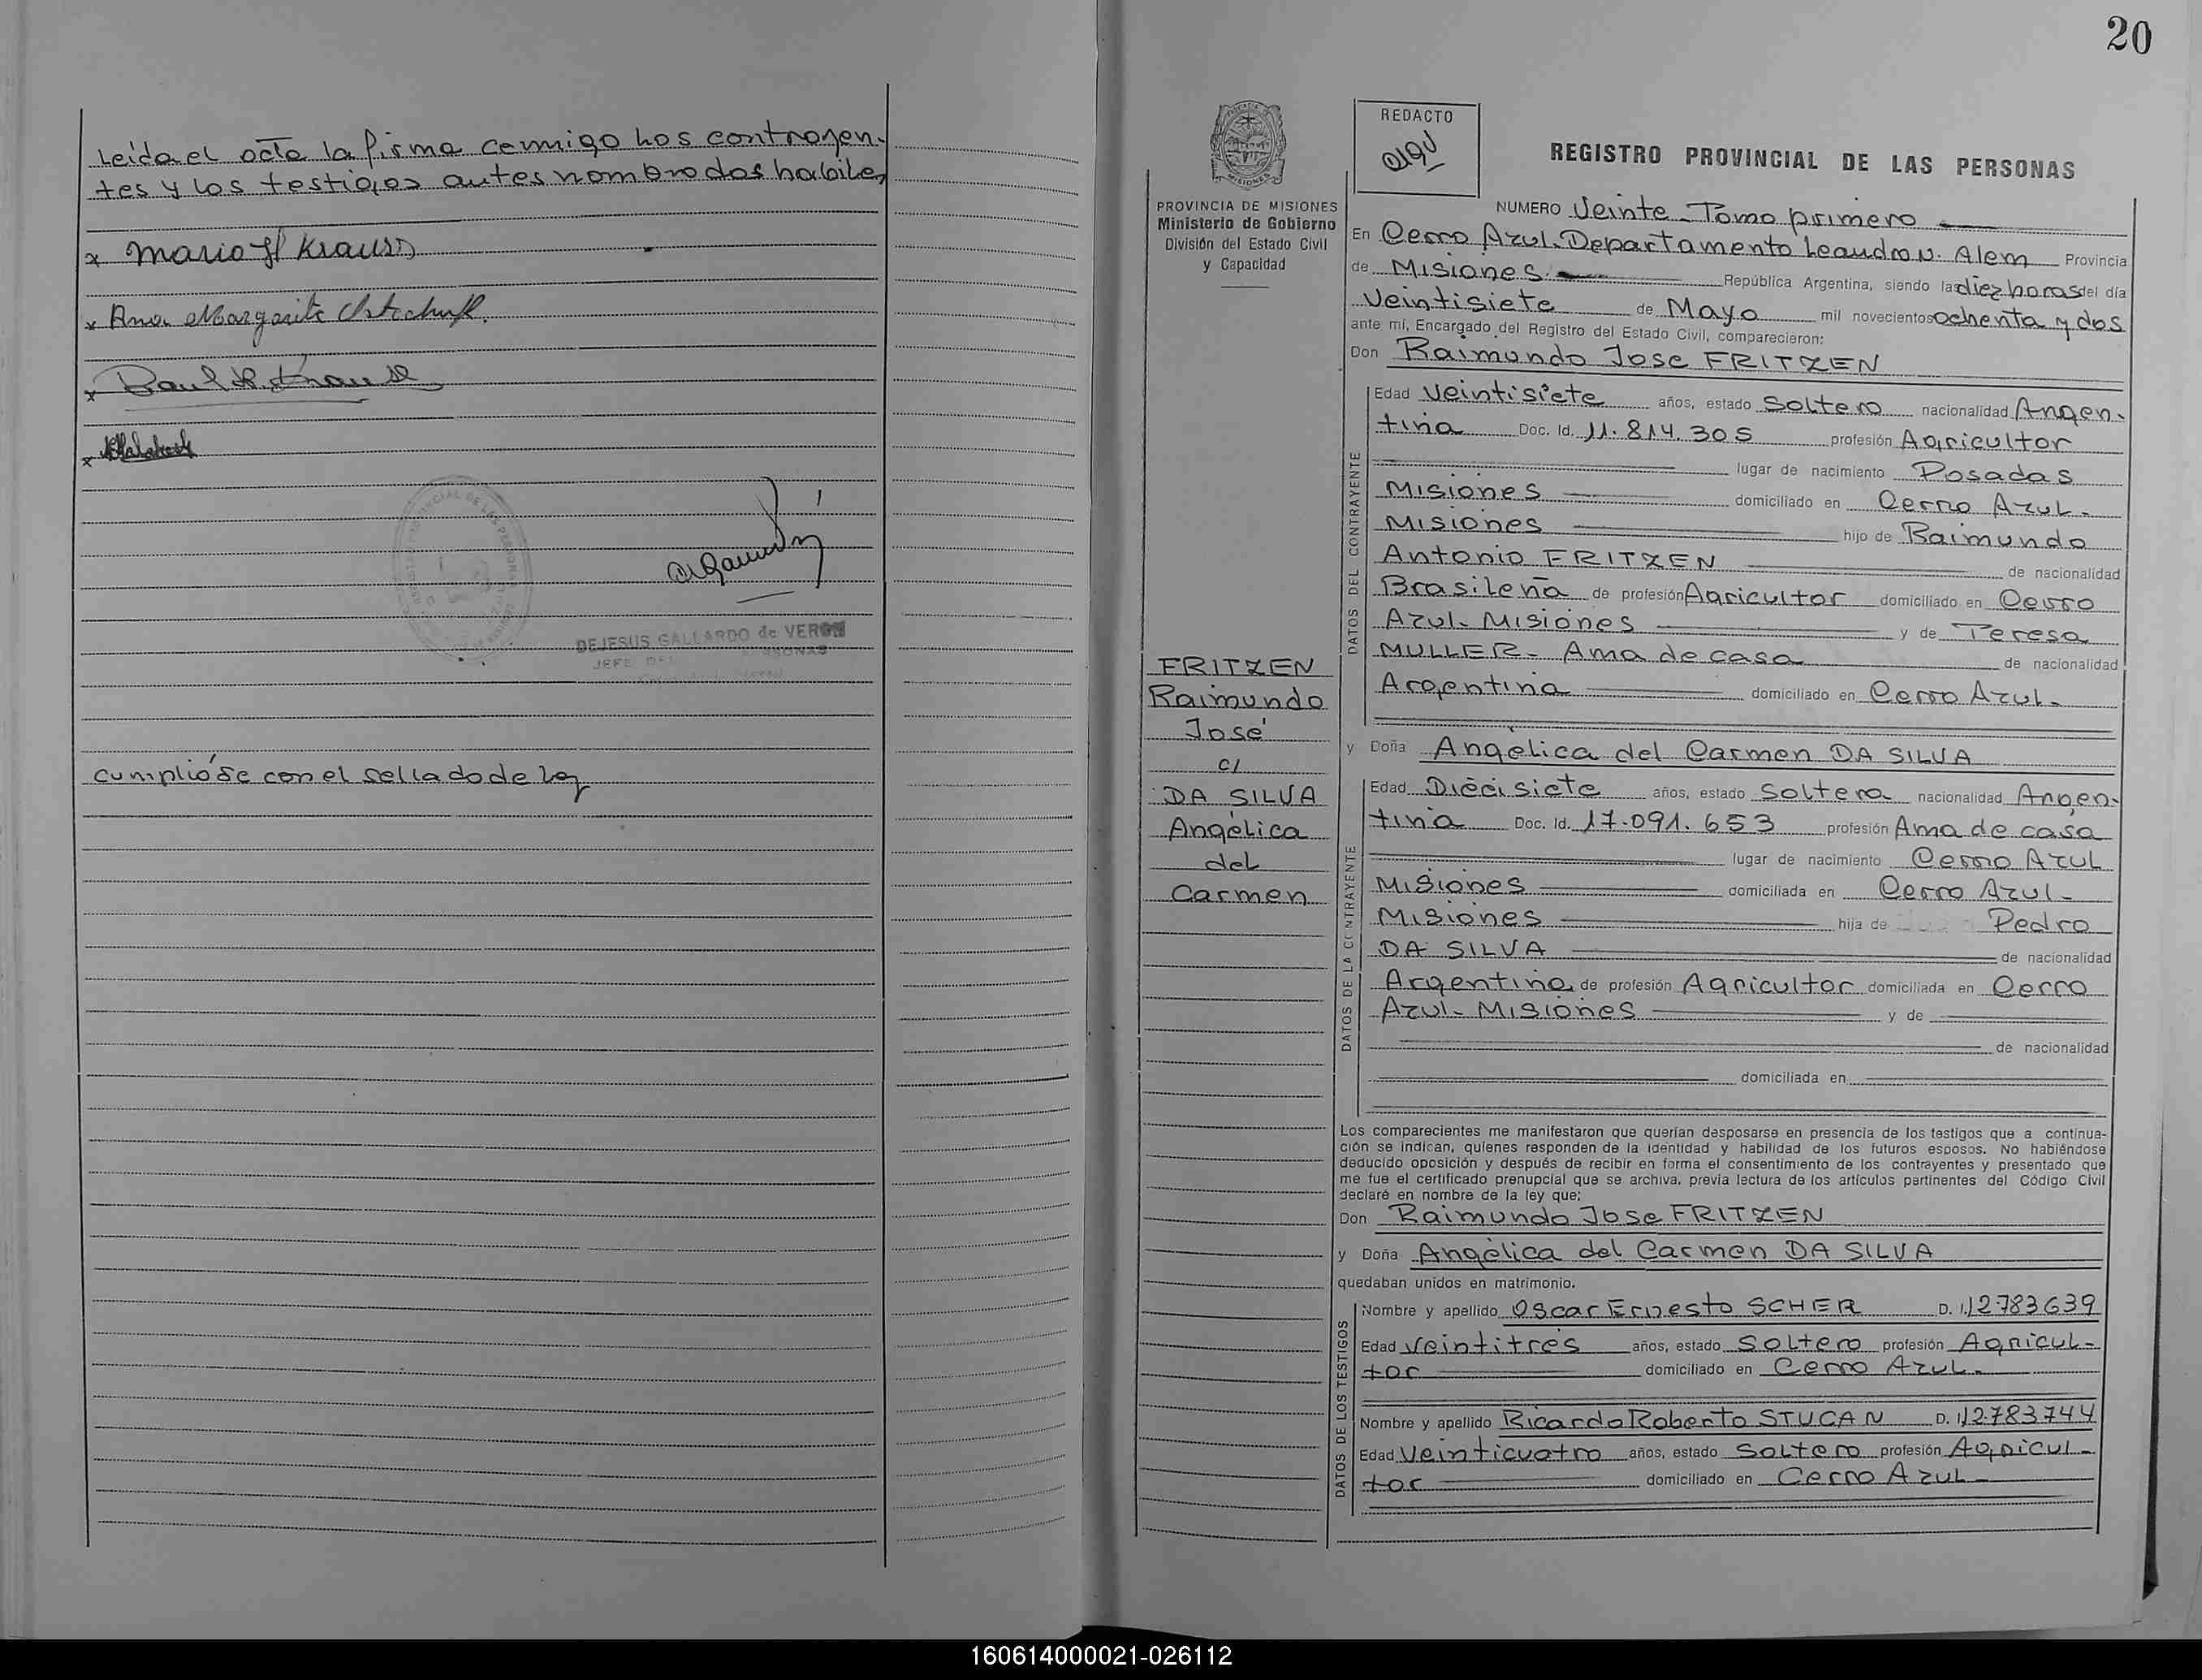 Leida el acta la firma conmigo Los contrayen-
tes y los testigos antes nombrados habiles
x Mario H Krauss
x Ana Margarita
x Raul H. Krause
x
REGISTRO PROVINCIAL DE LAS PERSONAS
DEJESUS GALLARDO de VERON
JEFE DEL PERSONAS
cumplióse con el sellado de Ley
20
PROVINCIA DE MISIONES
Ministerio de Gobierno
División del Estado Civil
y Capacidad
FRITZEN
Raimundo
José
c/
DA SILVA
Angélica
del
Carmen
REDACTO
REGISTRO PROVINCIAL DE LAS PERSONAS
NUMERO Veinte - Tomo primero
En Cerro Azul. Departamento Leandro N. Alem Provincia
de Misiones. República Argentina, siendo las diez horas del día
Veintisiete de Mayo mil novecientos ochenta y dos
ante mí, Encargado del Registro del Estado Civil, comparecieron:
Don Raimundo Jose FRITZEN
DATOS DEL CONTRAYENTE
Edad Veintisiete años, estado Soltero nacionalidad Argen-
tina Doc. Id. 11.814.305 profesión Agricultor
lugar de nacimiento Posadas
Misiones domiciliado en Cerro Azul-
Misiones hijo de Raimundo
Antonio FRITZEN de nacionalidad
Brasileña de profesión Agricultor domiciliado en Cerro
Azul- Misiones y de Teresa
MULLER- Ama de casa de nacionalidad
Argentina domiciliado en Cerro Azul-
y Doña Angélica del Carmen DA SILVA
DATOS DE LA CONTRAYENTE
Edad Diecisiete años, estado Soltera nacionalidad Argen-
tina Doc. Id. 17.091.653 profesión Ama de casa
lugar de nacimiento Cerro Azul
Misiones domiciliada en Cerro Azul-
Misiones hija de Pedro
DA SILVA de nacionalidad
Argentina de profesión Agricultor domiciliada en Cerro
Azul- Misiones y de
de nacionalidad
domiciliada en
Los comparecientes me manifestaron que querían desposarse en presencia de los testigos que a continua-
ción se indican, quienes responden de la identidad y habilidad de los futuros esposos. No habiéndose
deducido oposición y después de recibir en forma el consentimiento de los contrayentes y presentado que
me fue el certificado prenupcial que se archiva, previa lectura de los artículos pertinentes del Código Civil
declaré en nombre de la ley que:
Don Raimundo Jose FRITZEN
y Doña Angélica del Carmen DA SILVA
quedaban unidos en matrimonio.
DATOS DE LOS TESTIGOS
Nombre y apellido Oscar Ernesto SCHER D. I. 12.783639
Edad Veintitres años, estado Soltero profesión Agricul-
tor domiciliado en Cerro Azul-
Nombre y apellido Ricardo Roberto STUCAN D. I. 12.783744
Edad Veinticuatro años, estado Soltero profesión Agricul-
tor domiciliado en Cerro Azul-
160614000021-026112